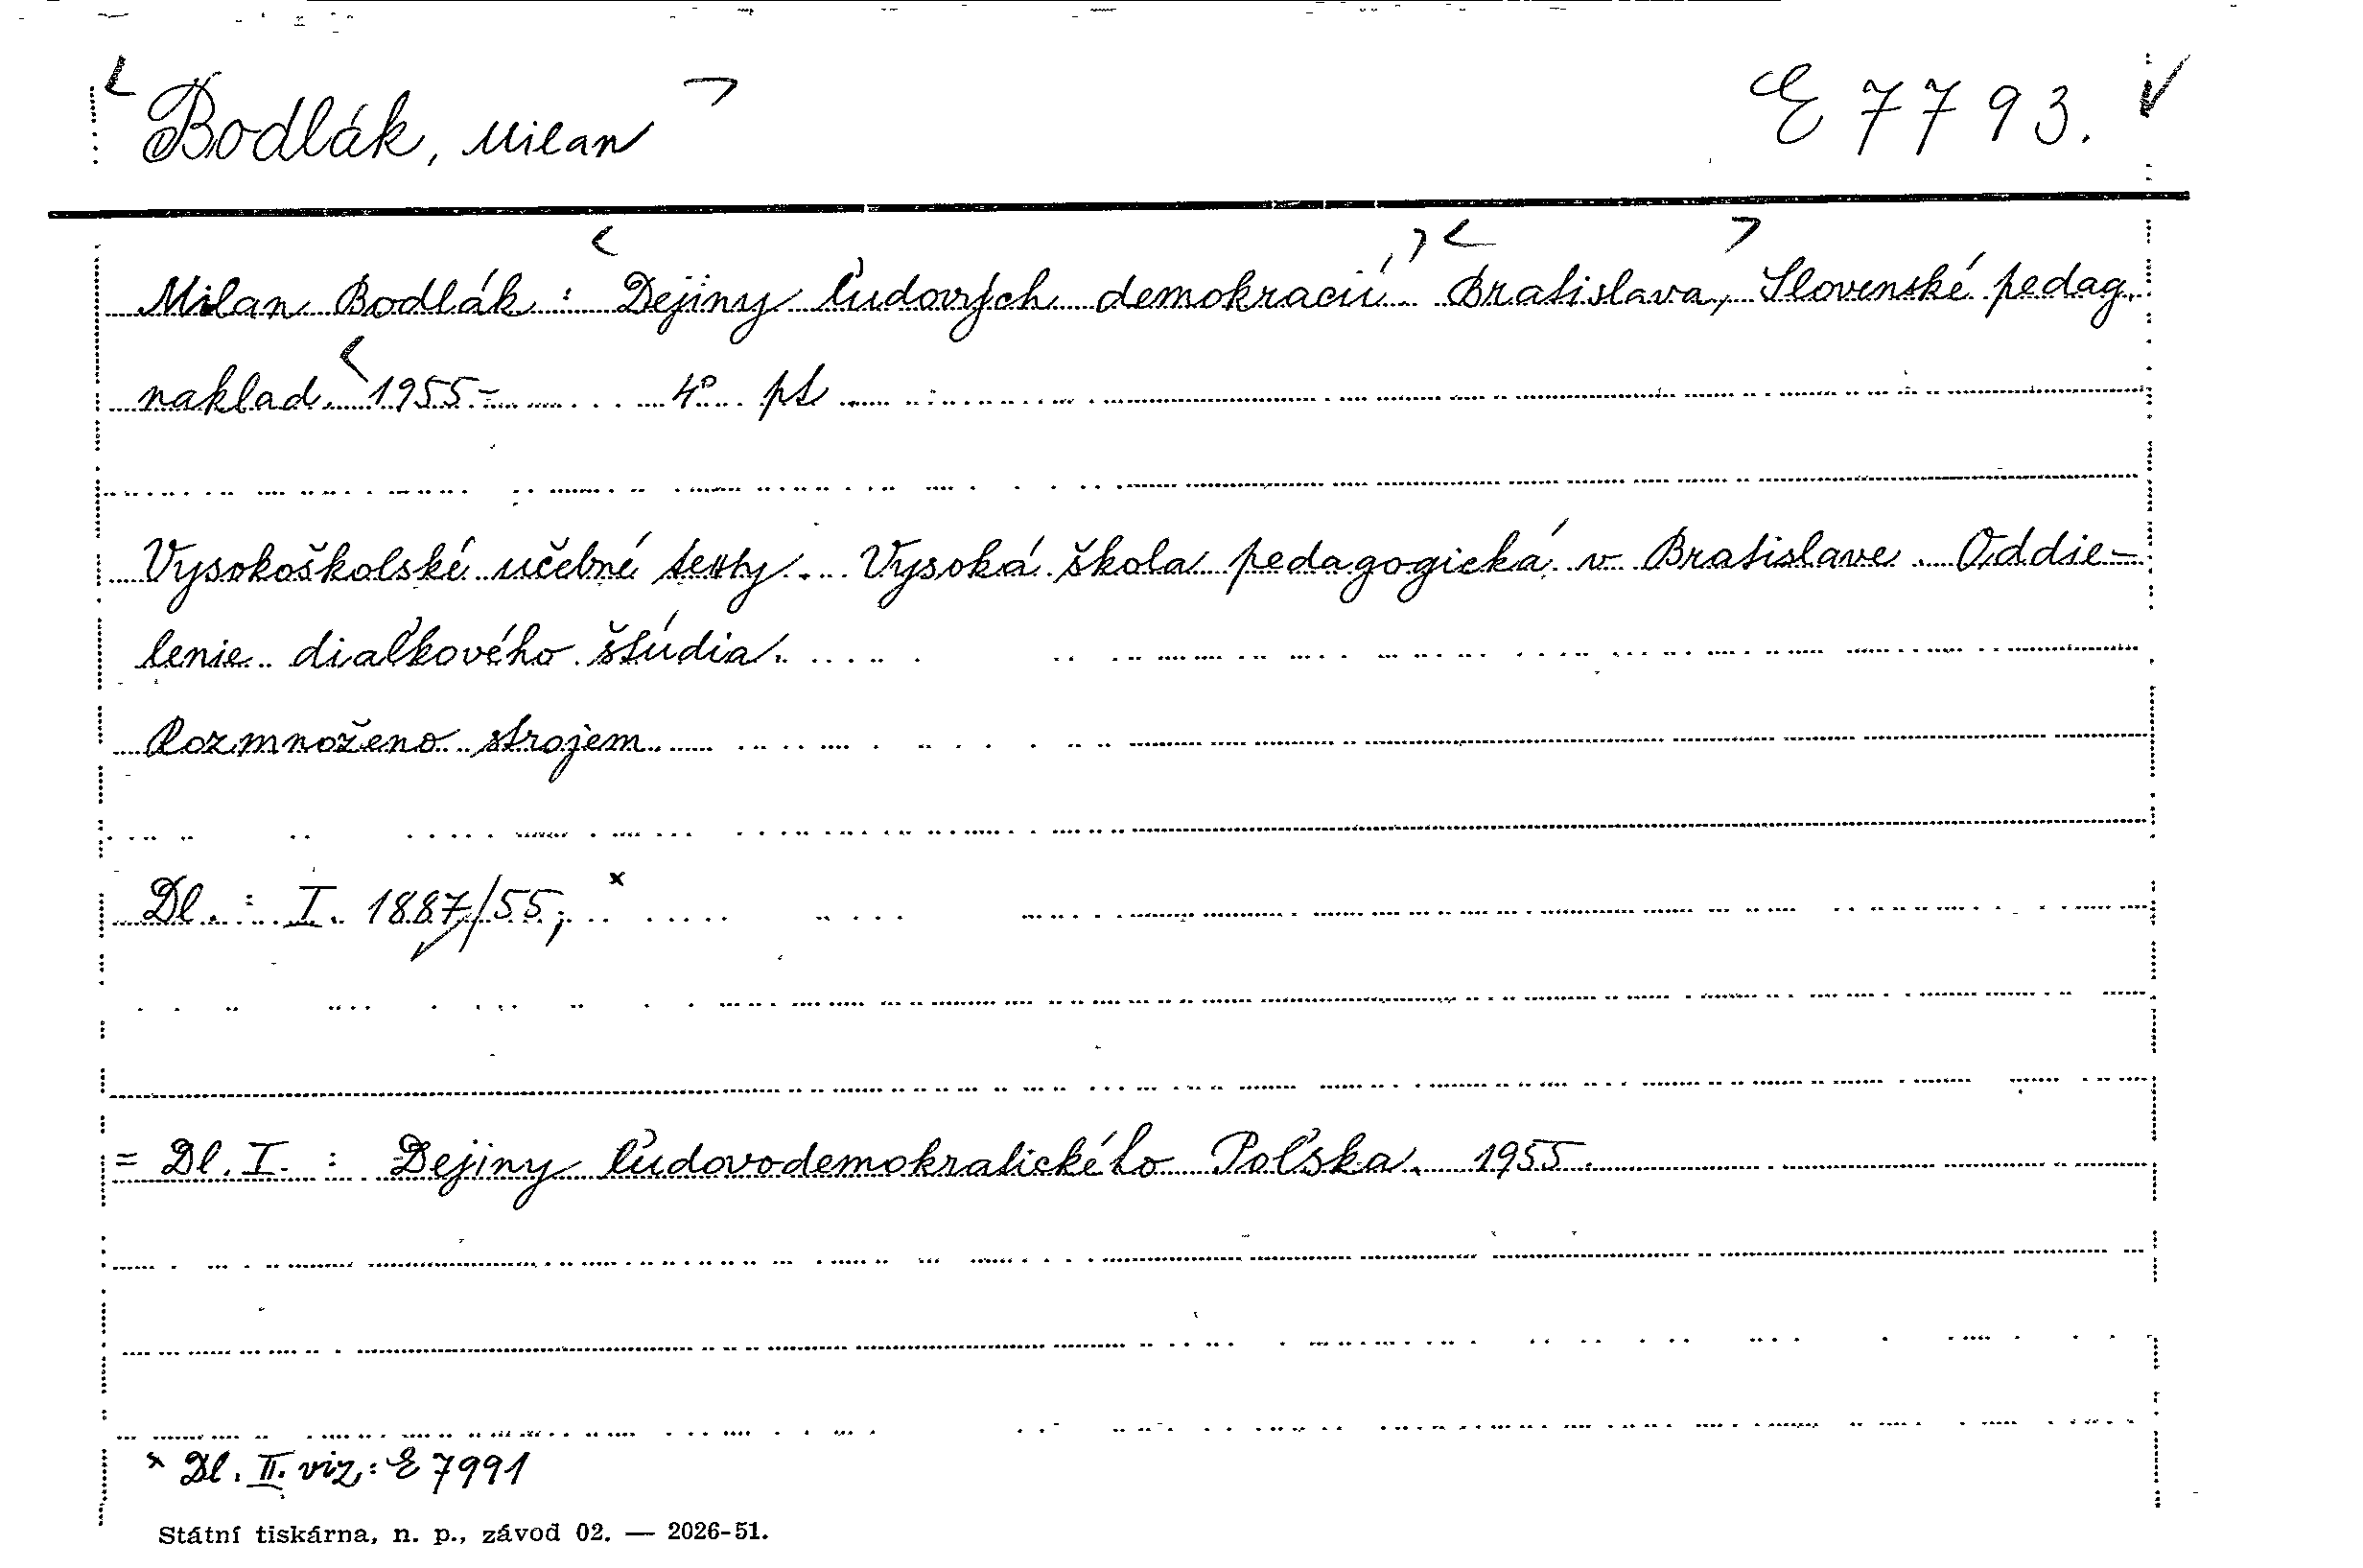 Bodlák, Milan E 7793.
Milan Bodlák : Dejiny ľudových demokracií. Bratislava, Slovenské pedag.
naklad. 1955- 4° pt
Vysokoškolské učebné texty. Vysoká škola pedagogická v Bratislave. Oddie-
lenie diaľkového štúdia.
Rozmnoženo strojem.
Dl. : I. 1887/55; x
= Dl. I. : Dejiny ľudovodemokratického Poľska. 1955.
x Dl. II. viz: E 7991
Státní tiskárna, n. p., závod 02. — 2026-51.